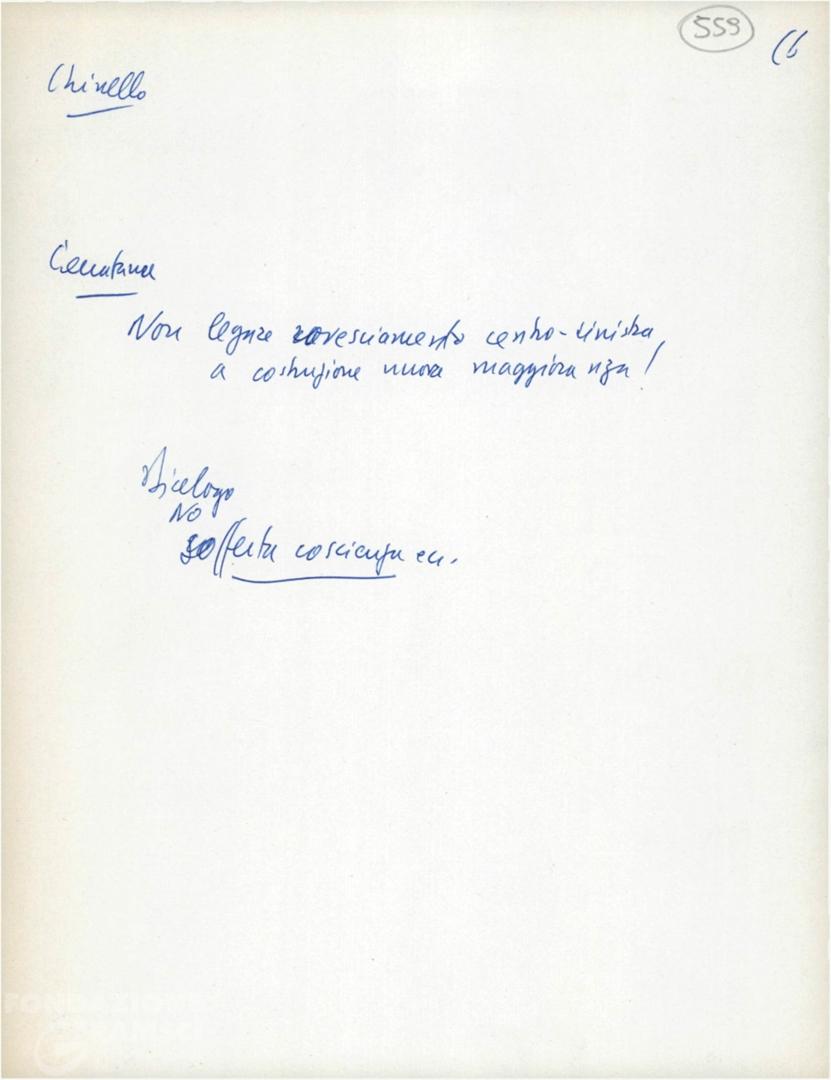 559
Chinello
Non legare rovesciamento centro-sinistra
a costruzione nuova maggioranza!
Dialogo
NO
sofferta coscienza ecc.
FONDAZIONE
GRAMSCI